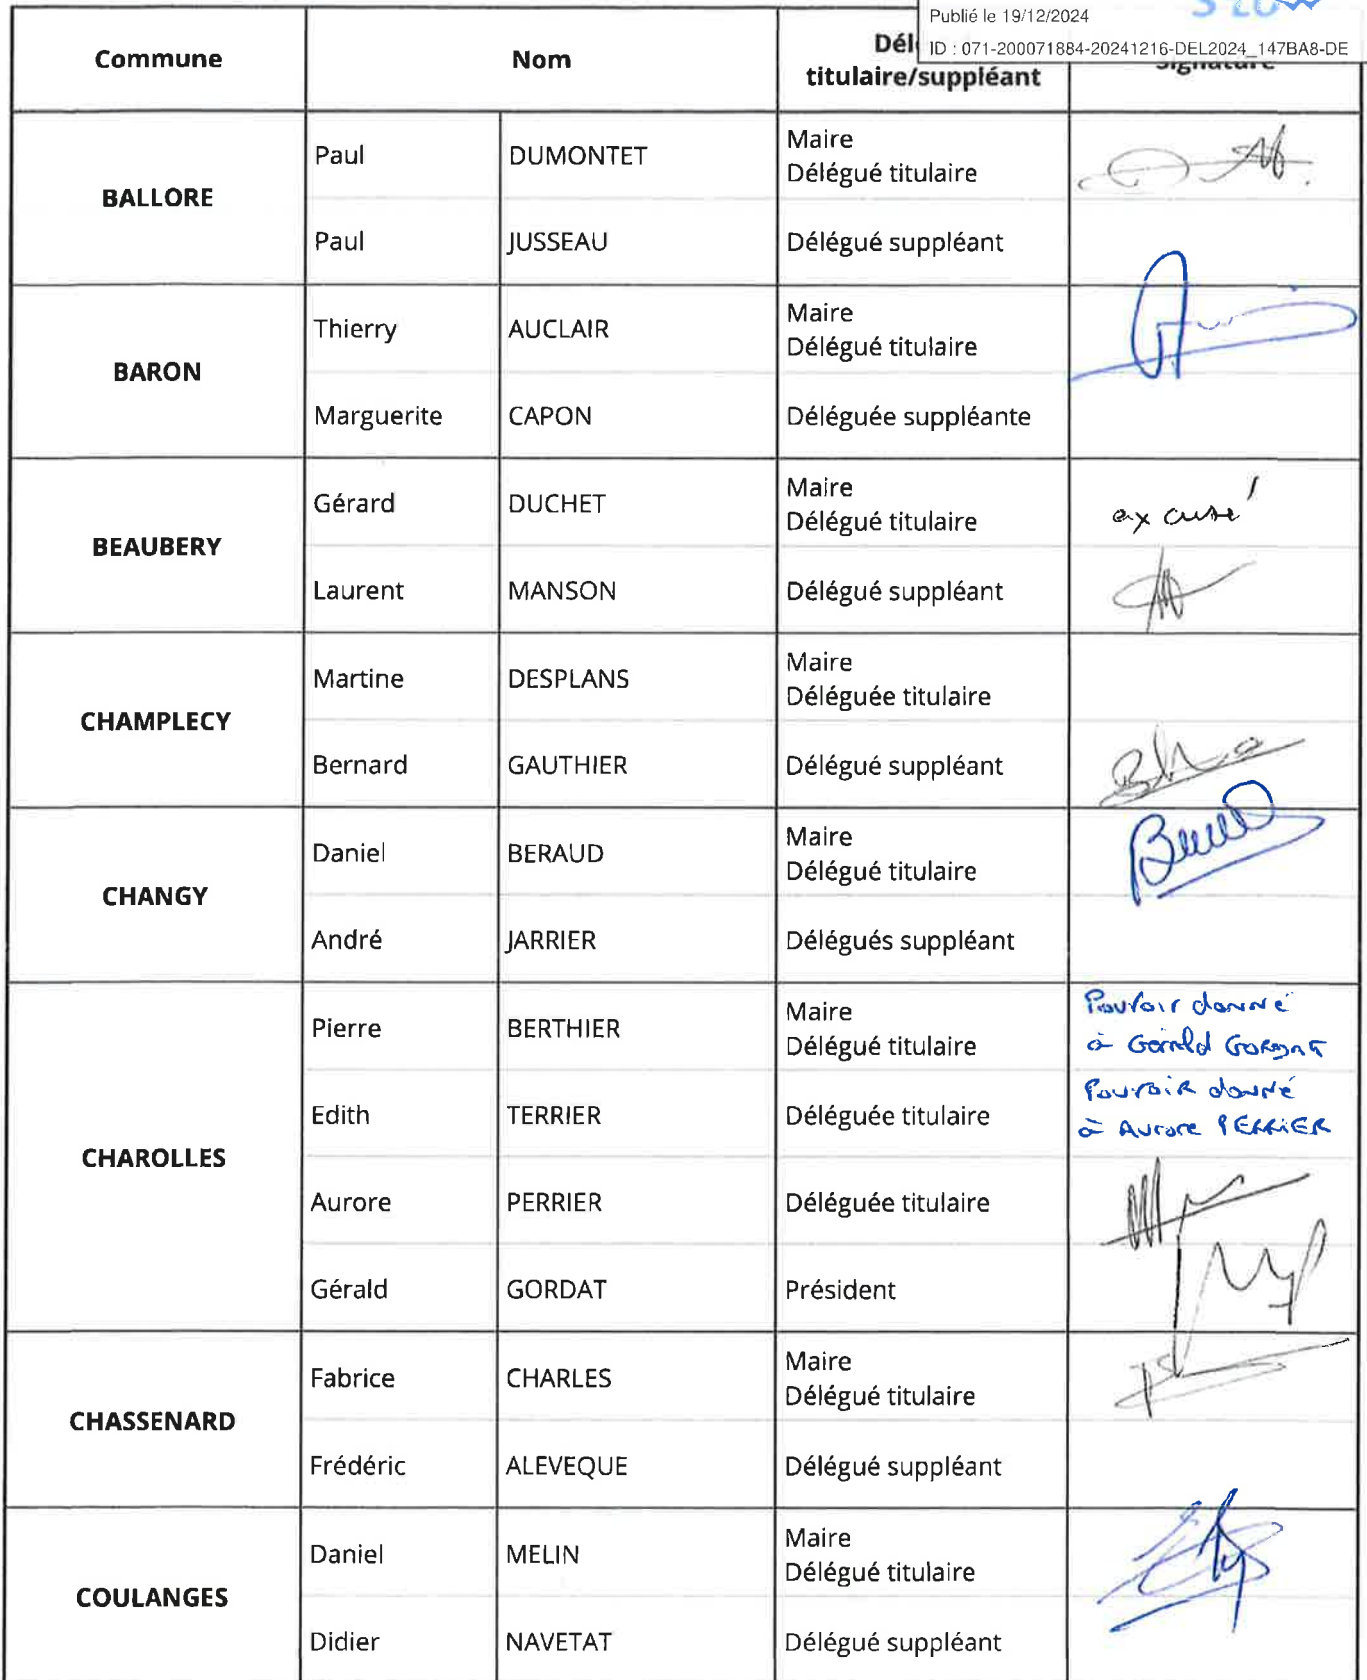 Publié le 19/12/2024
ID : 071-200071884-20241216-DEL2024_147BA8-DE
Commune
Nom
titulaire/suppléant
Signature
BALLORE
Paul DUMONTET
Maire
Délégué titulaire
Paul JUSSEAU
Délégué suppléant
BARON
Thierry AUCLAIR
Maire
Délégué titulaire
Marguerite CAPON
Déléguée suppléante
BEAUBERY
Gérard DUCHET
Maire
Délégué titulaire
excusé
Laurent MANSON
Délégué suppléant
CHAMPLECY
Martine DESPLANS
Maire
Déléguée titulaire
Bernard GAUTHIER
Délégué suppléant
CHANGY
Daniel BERAUD
Maire
Délégué titulaire
André JARRIER
Délégués suppléant
CHAROLLES
Pierre BERTHIER
Maire
Délégué titulaire
Pouvoir donné
à Gérald GORDAT
Edith TERRIER
Déléguée titulaire
Pouvoir donné
à Aurore PERRIER
Aurore PERRIER
Déléguée titulaire
Gérald GORDAT
Président
CHASSENARD
Fabrice CHARLES
Maire
Délégué titulaire
Frédéric ALEVEQUE
Délégué suppléant
COULANGES
Daniel MELIN
Maire
Délégué titulaire
Didier NAVETAT
Délégué suppléant